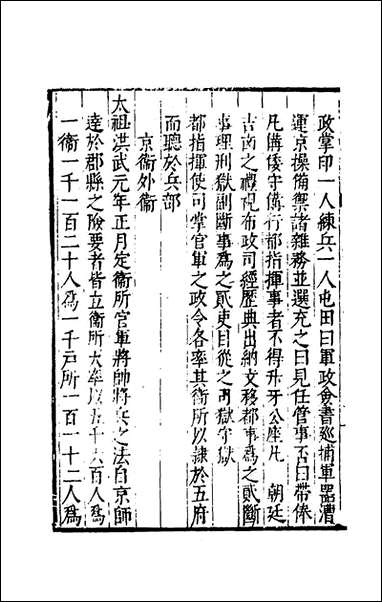 政掌印一人練兵一人屯田曰軍政僉書廵捕軍噐漕
運京操備禦諸雜務並選充之曰見任管事否曰帶俸
凡備倭守備行都指揮事者不得升牙公座凡　朝廷
吉凶之禮視布政司經歷典出納文移都事為之貳斷
事理刑獄副斷事為之貳吏目從之司獄守獄
都指揮使司掌官軍之政令各率其衞所以隷於五府
而聽於兵部
京衞外衞
太祖洪武元年正月定衞所官軍將帥將兵之法自京師
達於郡縣之險要者皆立衞所大率以五千六百人爲
一衞一千一百二十人爲一千戶所一百一十二人爲